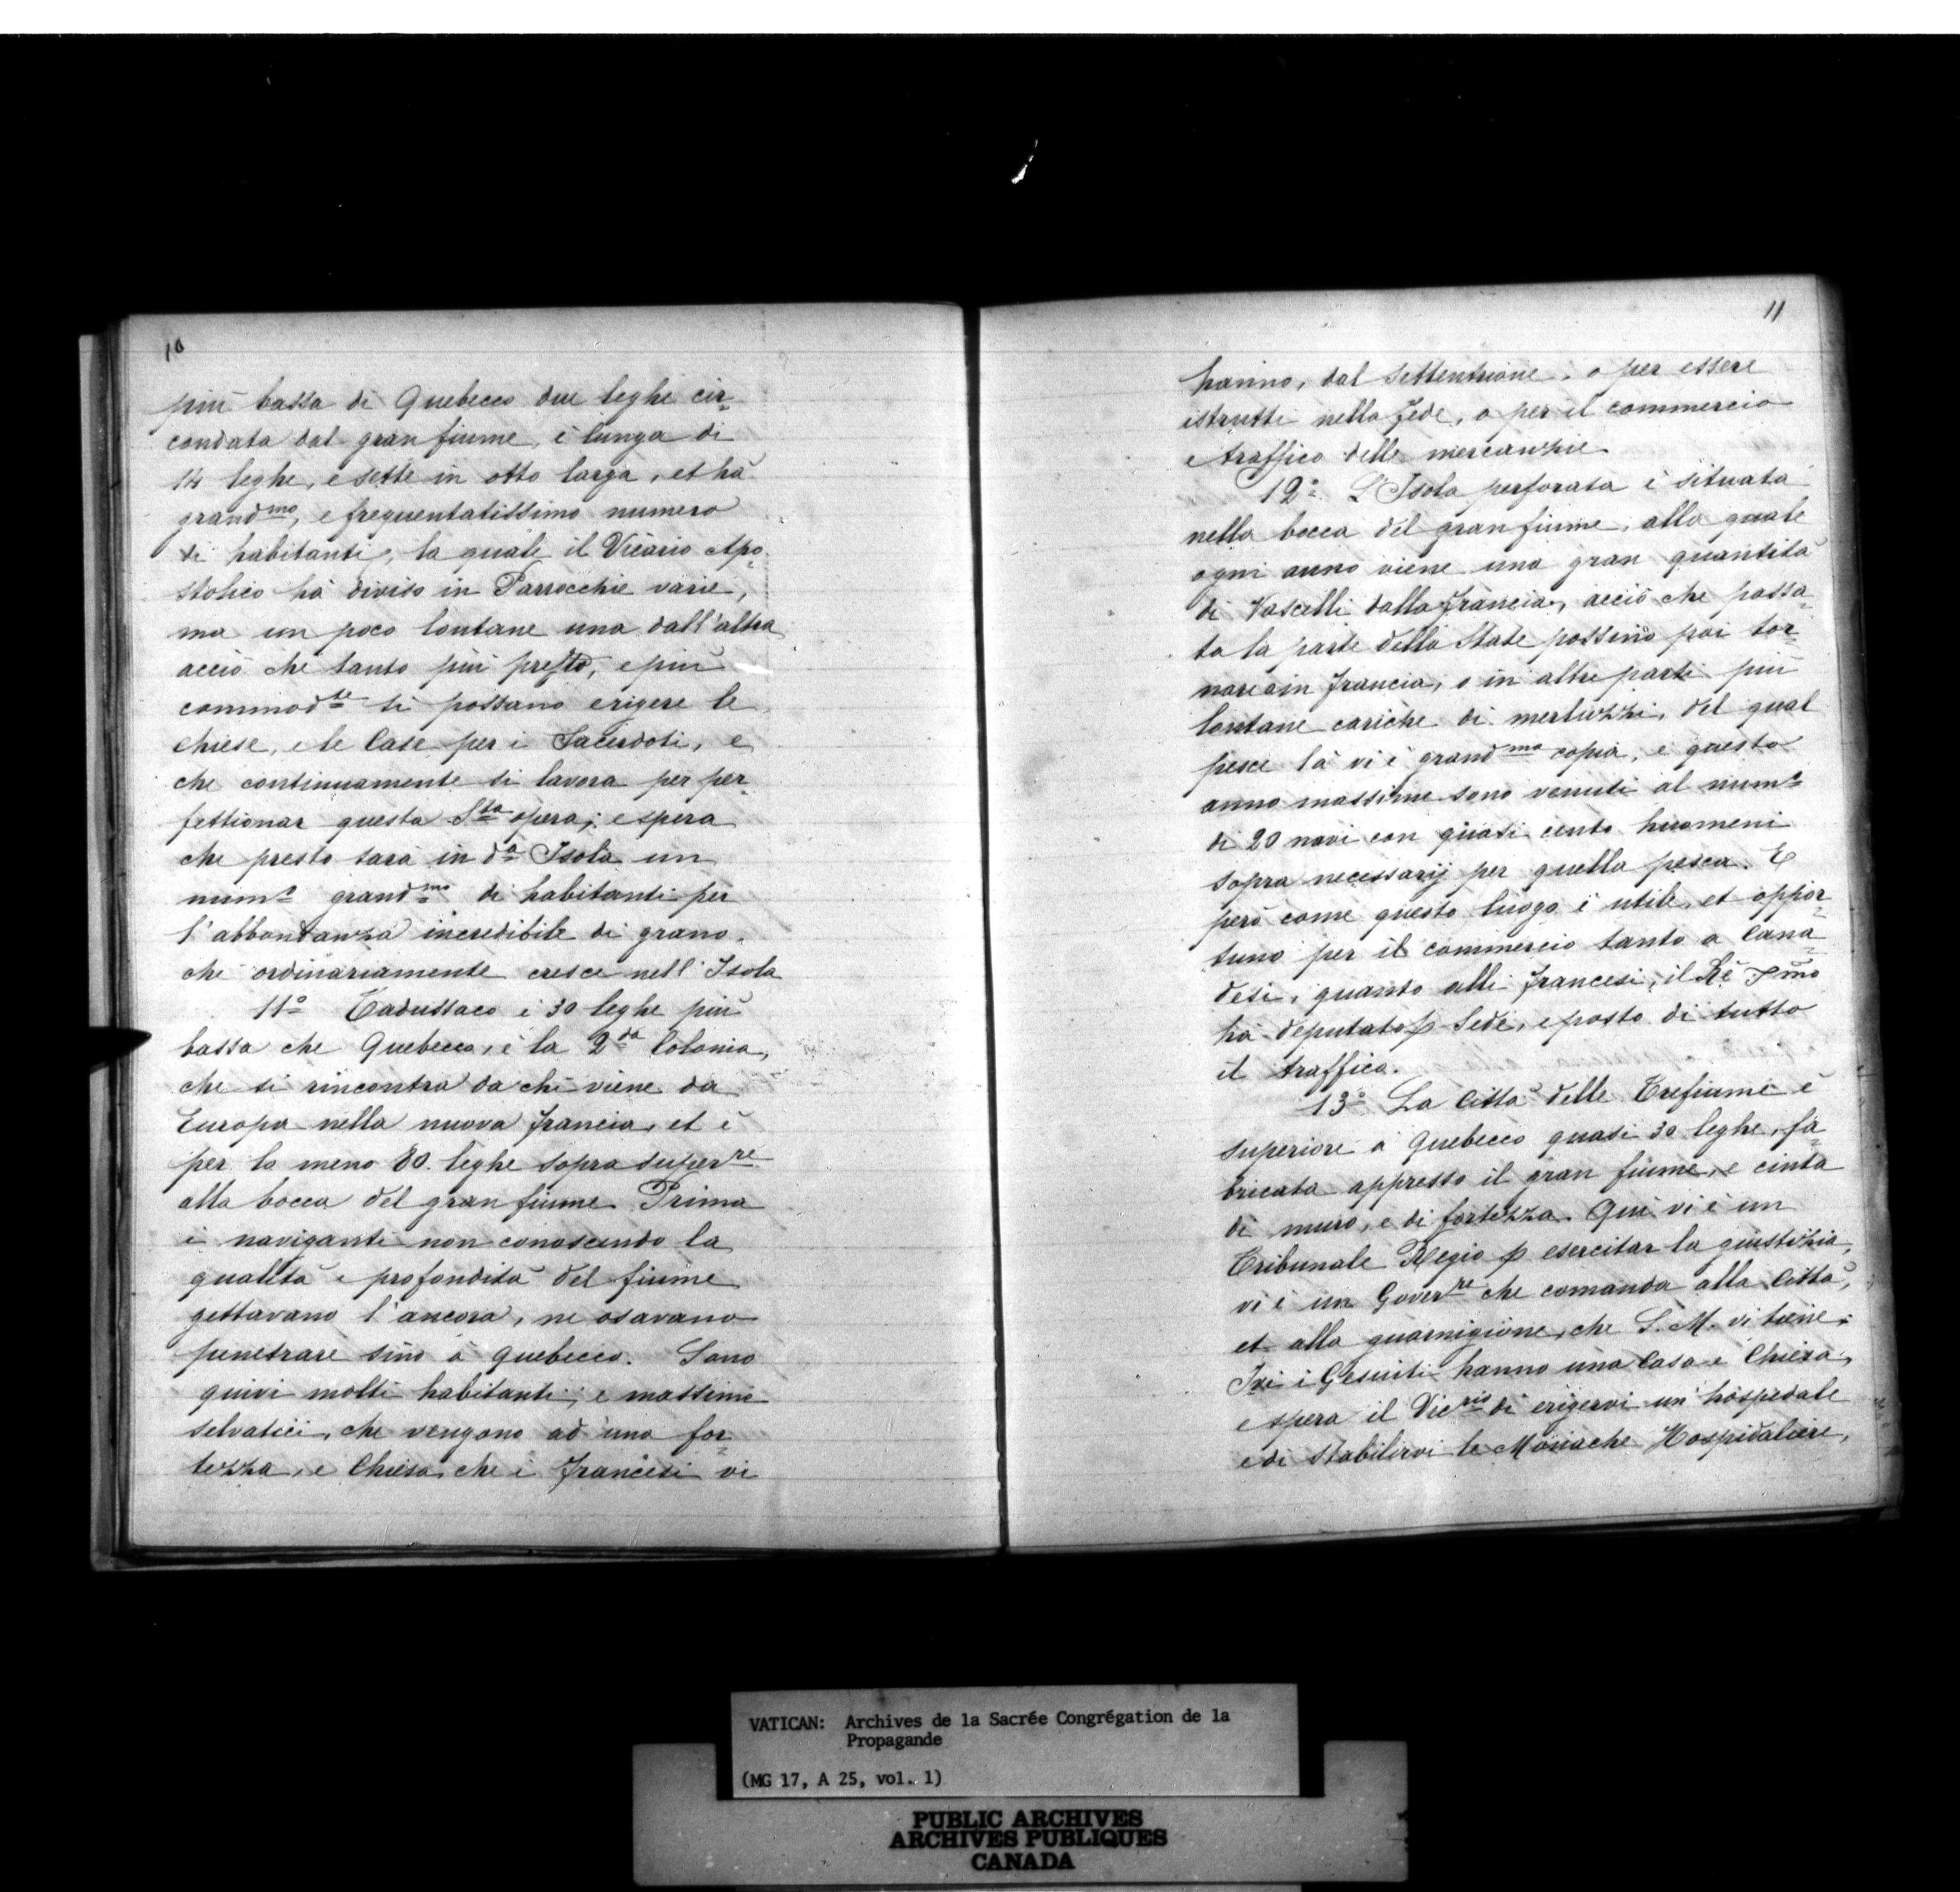 10
più bassa di Quebecco due leghe cir-
condata dal gran fiume, è lunga di
14 leghe, e sette in otto larga, et hà
grandmo, e frequentatissimo numero
di habitanti, la quale il Vicario Apo-
stolico hà diviso in Parrocchie varie,
ma un poco lontane una dall'altra
acciò che tanto più presto, e più
commodte si possano erigere le
chiese, e le Case per i Sacerdoti, e
che continuamente si lavora per per-
fettionar questa Sta opera; e spera
che presto sarà in da Isola un
numo grandmo di habitanti per
l'abbondanza incredibile di grano,
che ordinariamente cresce nell'Isola
11o Tadussaco è 30 leghe più
bassa che Quebecco, è la 2da Colonia,
che si rincontra da chi viene da
Europa nella nuova Francia, et è
per lo meno 80. leghe sopra superre
alla bocca del gran fiume. Prima
i naviganti non conoscendo la
qualità e profondità del fiume
gettavano l'ancora, ne osavano
penetrare sino à Quebecco. Sono
quivi molti habitanti, e massime
selvatici, che vengono ad una for-
tezza, e Chiesa, che i Francesi vi
11
hanno, dal settentrione, o per essere
istrutti nella Fede, o per il commercio
e traffico delle mercanzie.
12o. L'Isola perforata è situata
nella bocca del gran fiume, alla quale
ogni anno viene una gran quantità
di Vascelli dalla Francia, acciò che passa-
ta la parte della State possino poi tor-
nare ò in Francia, o in altre parti più
lontane cariche di merluzzi, del qual
pesce là vi è grandma copia, e questo
anno massime sono venuti al numo
di 20 navi con quasi cento huomeni
sopra necessarij per quella pesca. E
però come questo luogo è utile, et oppor-
tuno per il commercio tanto a Cana-
desi, quanto alli Francesi, il Rè Xmo
ha deputato p Sede, e posto di tutto
il traffico.
13o La Città delle Trefiume è
superiore à Quebecco quasi 30 leghe, fa-
bricata appresso il gran fiume, e cinta
di muro, e di fortezza. Qui vi è un
Tribunale Regio p esercitar la giustizia,
vi è un Governre che comanda alla Città,
et alla guarnigione, che S. M. vi tiene;
Ivi i Gesuiti hanno una Casa e Chiesa,
e spera il Vicrio di erigervi un hospedale
e di stabilirvi le Monache Hospidaliere,
VATICAN: Archives de la Sacrée Congrégation de la
Propagande
(MG 17, A 25, vol. 1)
PUBLIC ARCHIVES
ARCHIVES PUBLIQUES
CANADA